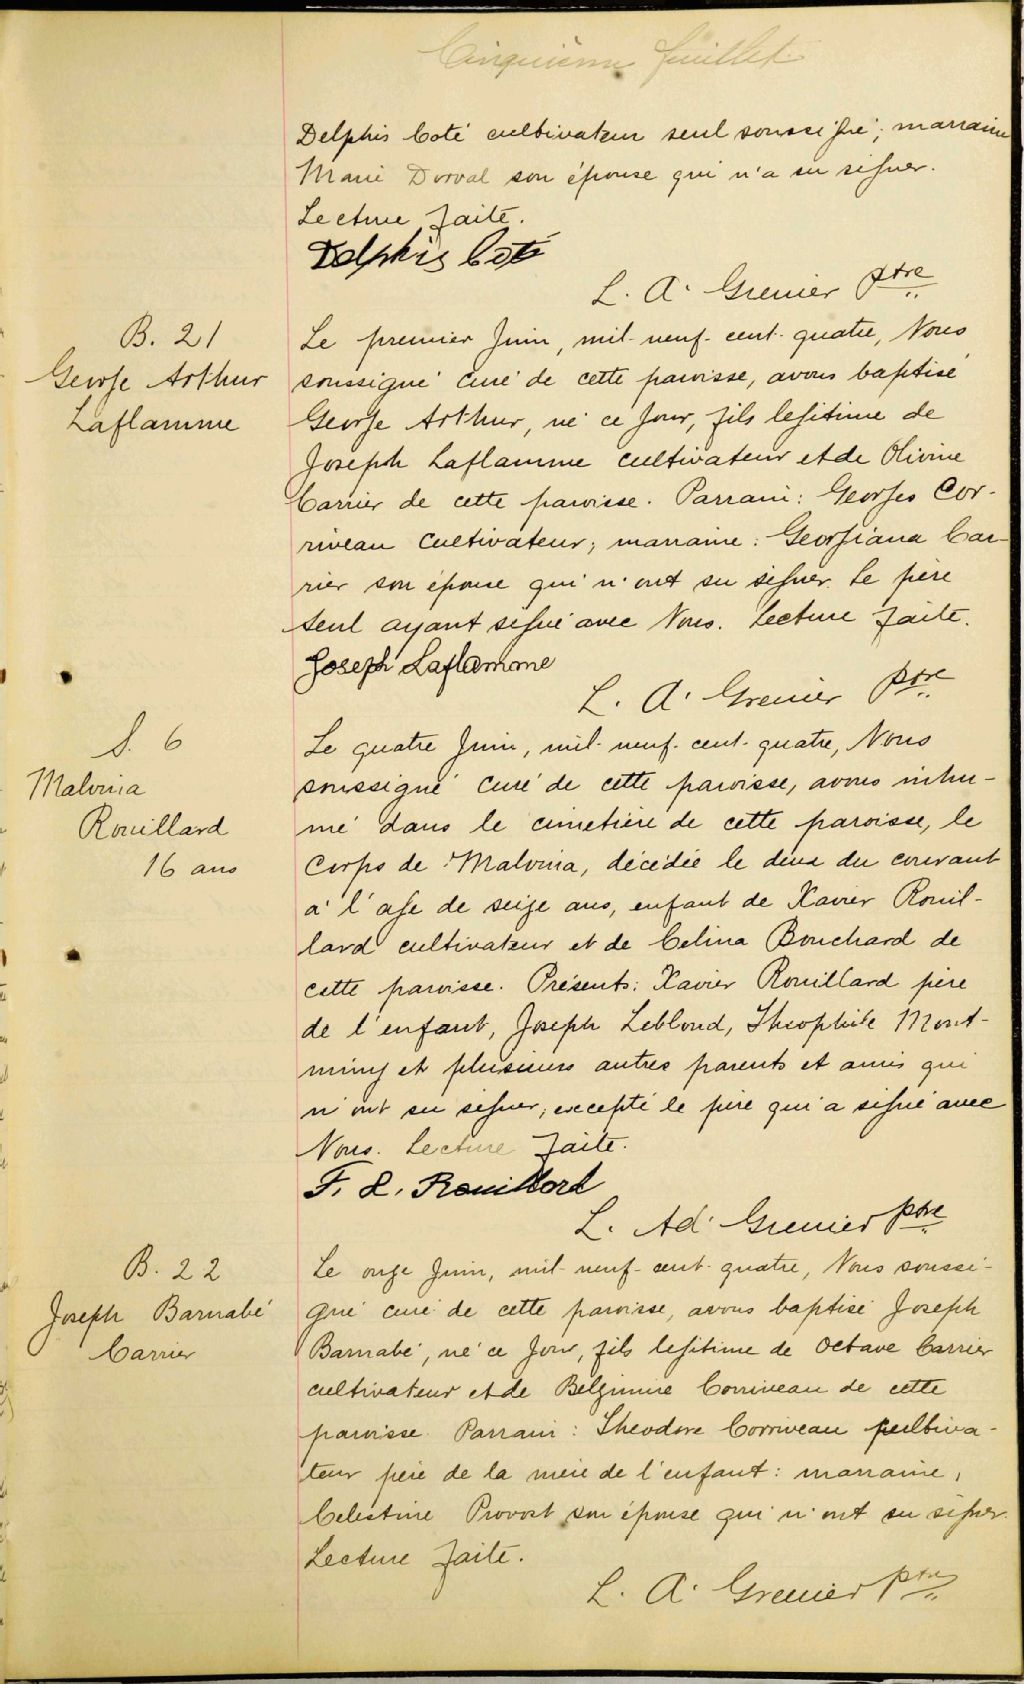 Cinquième feuillet
Delphis Coté cultivateur seul soussigné; marraine
Marie Dorval son épouse qui n'a su signer.
Lecture faite.
Delphis Coté
L. A. Grenier ptre
B. 21
George Arthur
Laflamme
Le premier Juin, mil-neuf-cent-quatre, Nous
soussigné curé de cette paroisse, avons baptisé
George Arthur, né ce Jour, fils legitime de
Joseph Laflamme cultivateur et de Olivine
Carrier de cette paroisse. Parrain: Georges Cor-
riveau cultivateur; marraine: Georgiana Car-
rier son épouse qui n'ont su signer. Le père
seul ayant signé avec Nous. Lecture faite.
Joseph Laflamme
L. A. Grenier ptre
S. 6
Malvina
Rouillard
16 ans
Le quatre Juin, mil-neuf-cent-quatre, Nous
soussigné curé de cette paroisse, avons inhu-
mé dans le cimetière de cette paroisse, le
Corps de Malvina, décédée le deux du courant
a l'age de seize ans, enfant de Xavier Rouil-
lard cultivateur et de Celina Bouchard de
cette paroisse. Présents: Xavier Rouillard père
de l'enfant, Joseph Leblond, Théophile Mont-
miny et plusieurs autres parents et amis qui
n'ont su signer, excepté le père qui a signé avec
Nous. Lecture faite.
F. X. Rouillard
L. Ad. Grenier ptre
B. 22
Joseph Barnabé
Carrier
Le onze Juin, mil-neuf-cent-quatre, Nous soussi-
gné curé de cette paroisse, avons baptisé Joseph
Barnabé, né ce Jour, fils legitime de Octave Carrier
cultivateur et de Belzimire Corriveau de cette
paroisse. Parrain: Theodore Corriveau cultiva-
teur père de la mère de l'enfant: marraine,
Celestine Provost son épouse qui n'ont su signer.
Lecture faite.
L. A. Grenier ptre